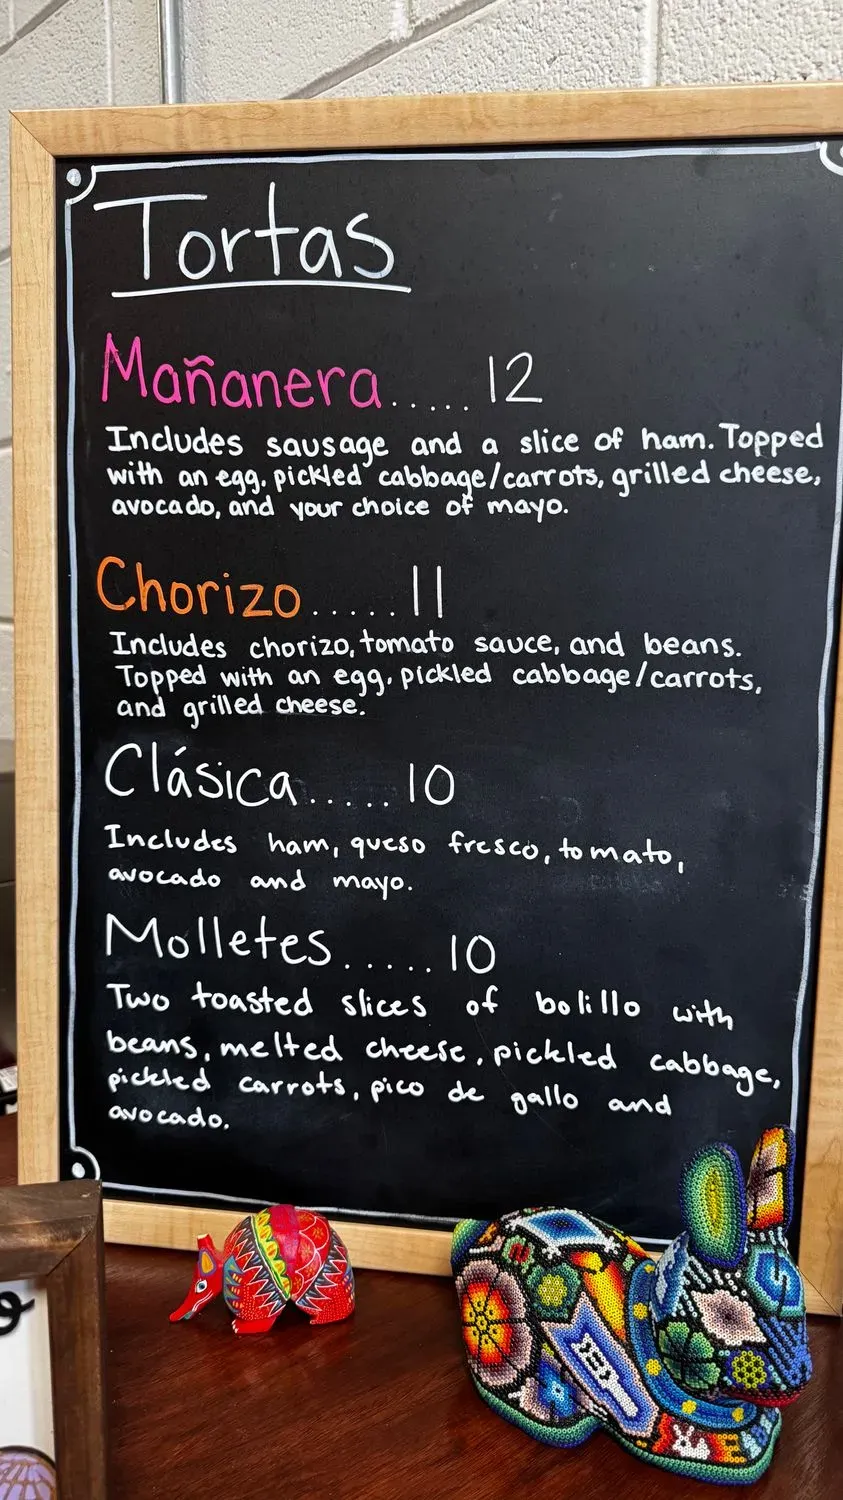 Tortas
Mañanera.....12
Includes sausage and a slice of ham. Topped
with an egg, pickled cabbage/carrots, grilled cheese,
avocado, and your choice of mayo.
Chorizo.....11
Includes chorizo, tomato sauce, and beans.
Topped with an egg, pickled cabbage/carrots,
and grilled cheese.
Clásica.....10
Includes ham, queso fresco, tomato,
avocado and mayo.
Molletes.....10
Two toasted slices of bolillo with
beans, melted cheese, pickled cabbage,
pickled carrots, pico de gallo and
avocado.